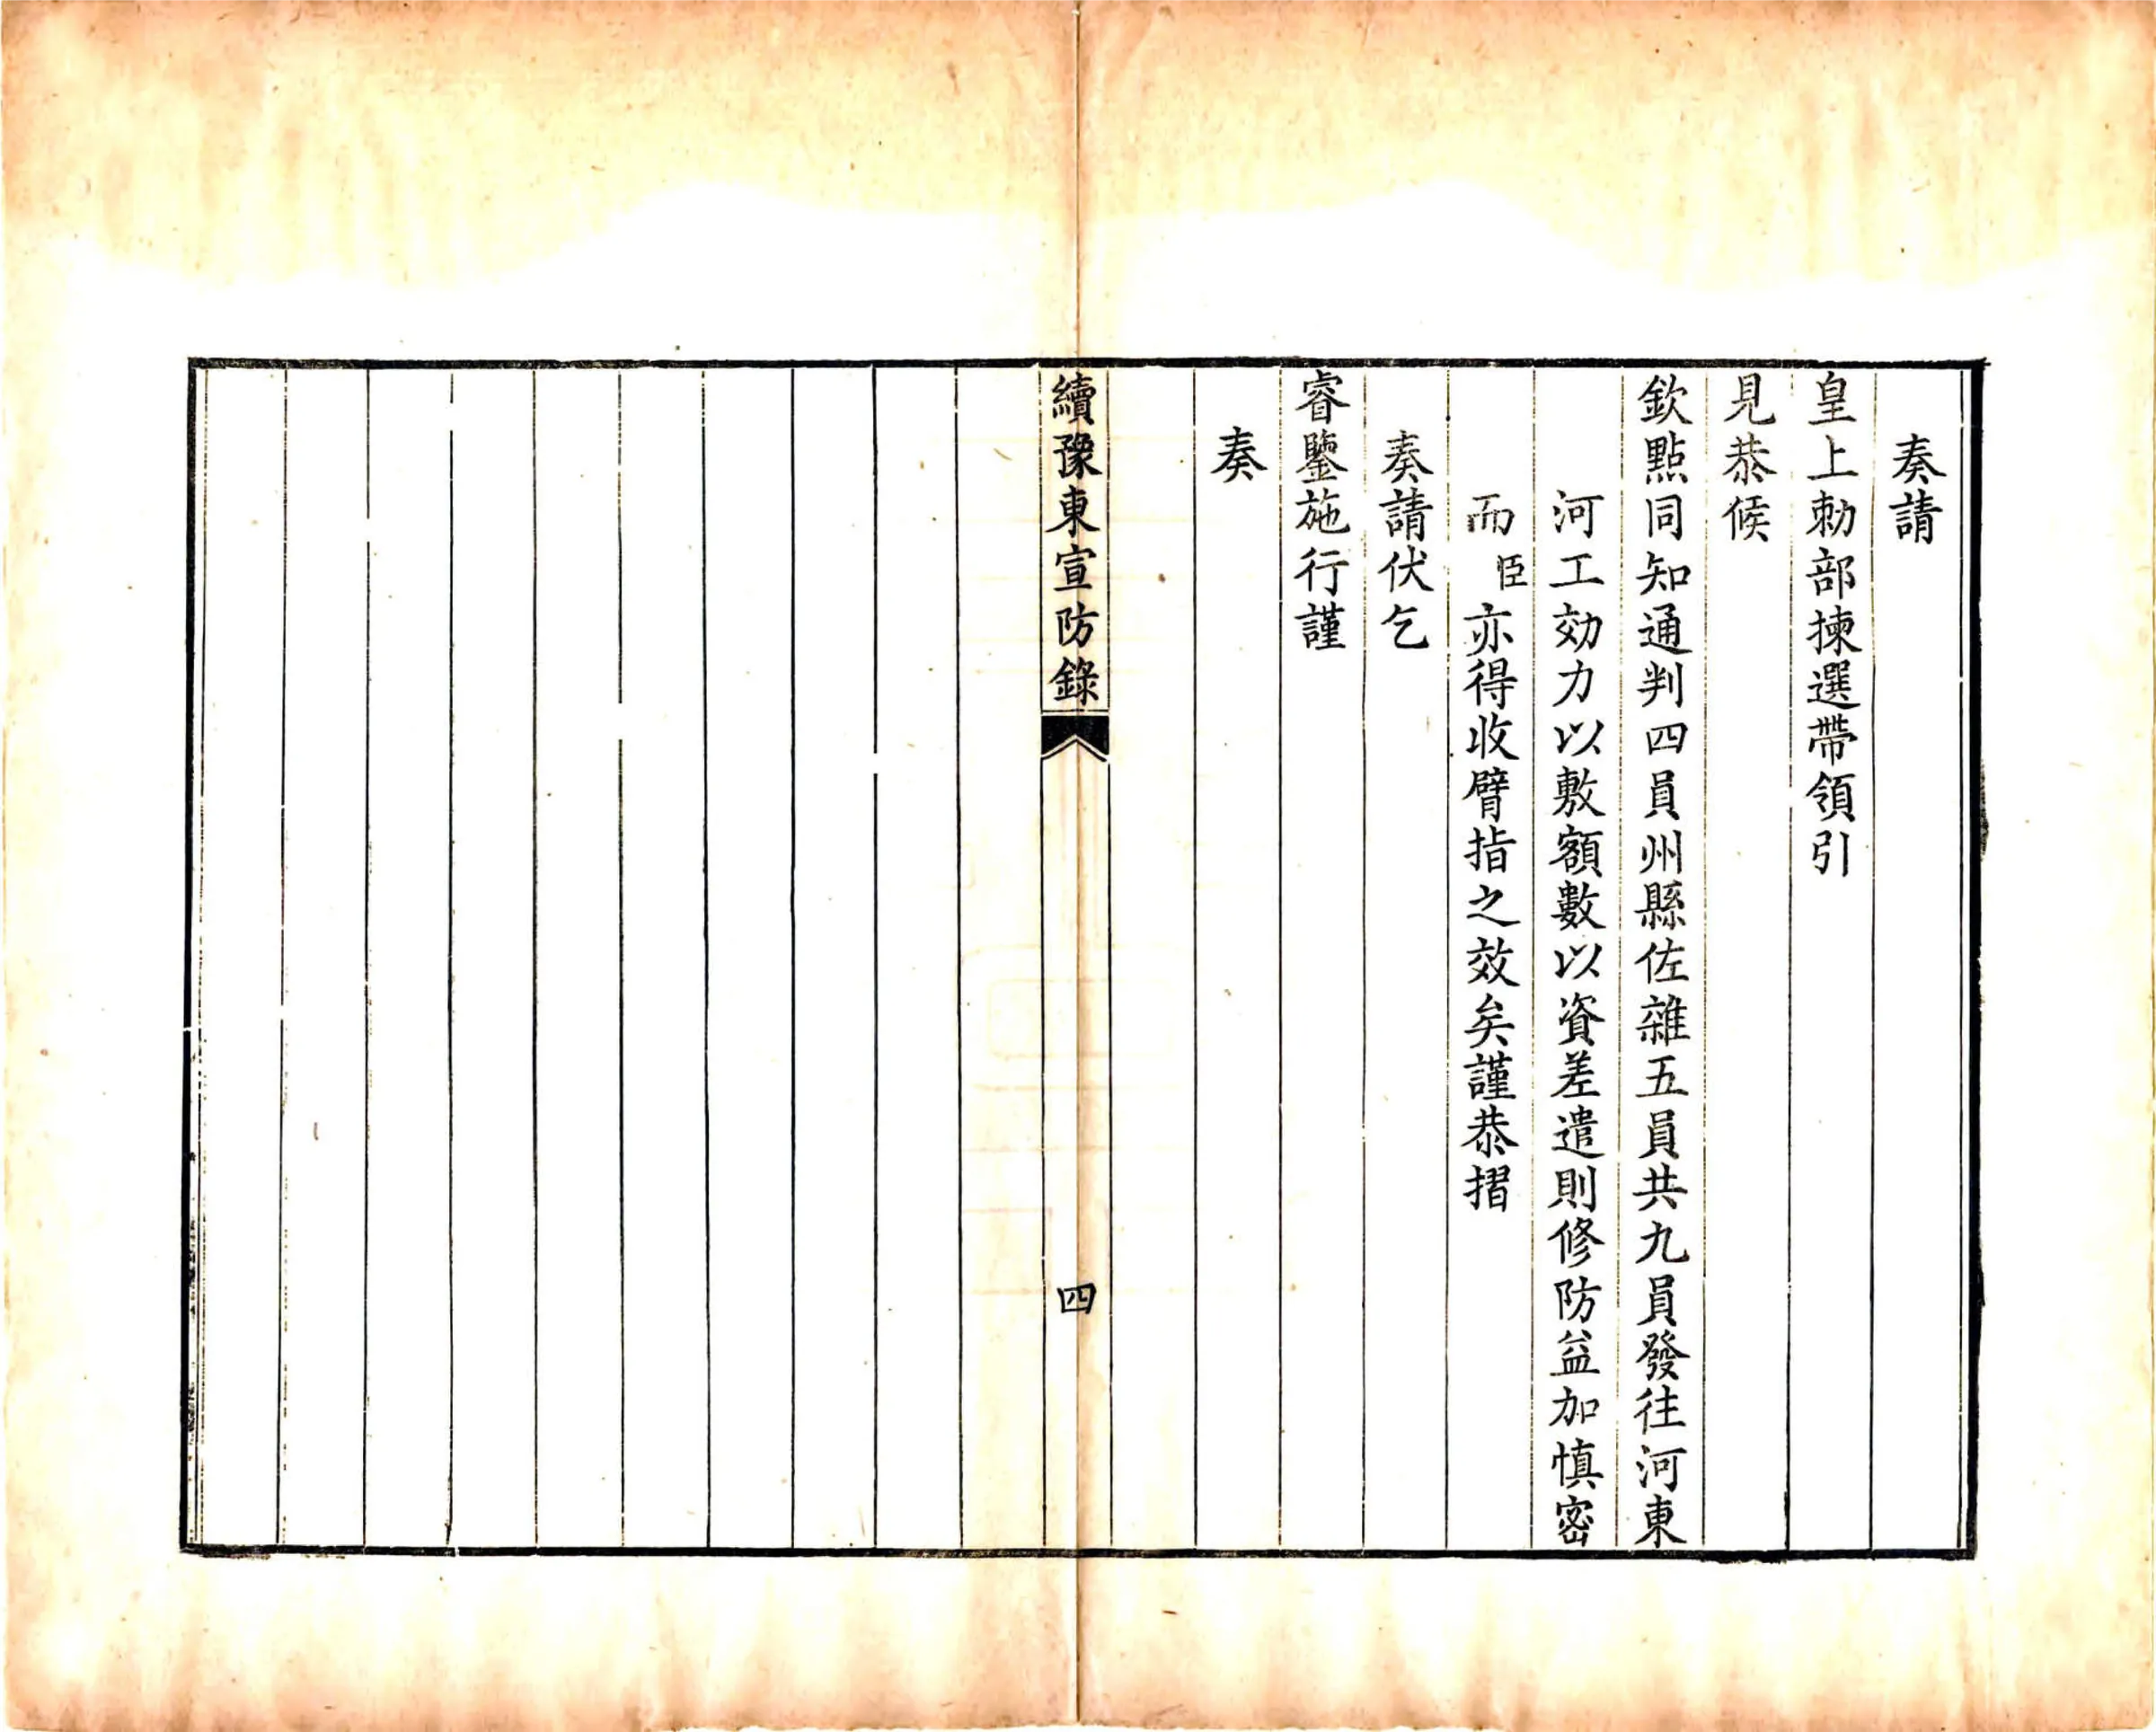 奏請
皇上勅部揀選帶領引
見恭候
欽點同知通判四員州縣佐雜五員共九員發往河東
河工効力以敷額數以資差遣則修防益加慎密
而臣亦得收臂指之效矣謹恭摺
奏請伏乞
睿鑒施行謹
奏
續豫東宣防錄
四